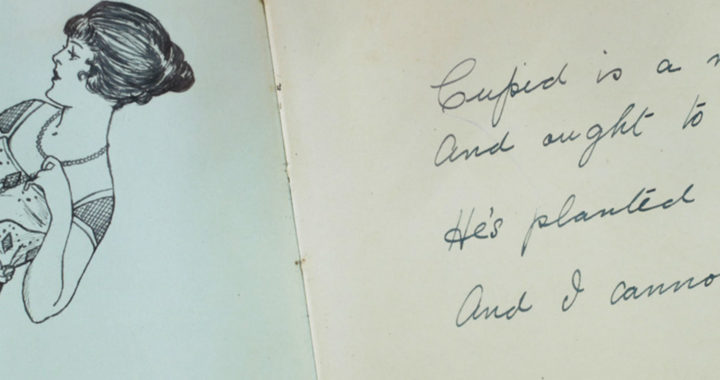 Cupid is a
And ought to
He's planted
And I